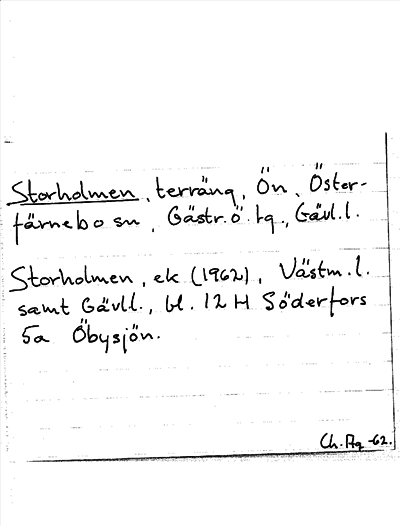 Storholmen, terräng, Ön, Öster-
färnebo sn, Gästr.ö.tg., Gävl.l.
Storholmen, ek (1962), Västm.l.
samt Gävl.l., bl. 12 H Söderfors
5a Öbysjön.
Ch.Ag -62.